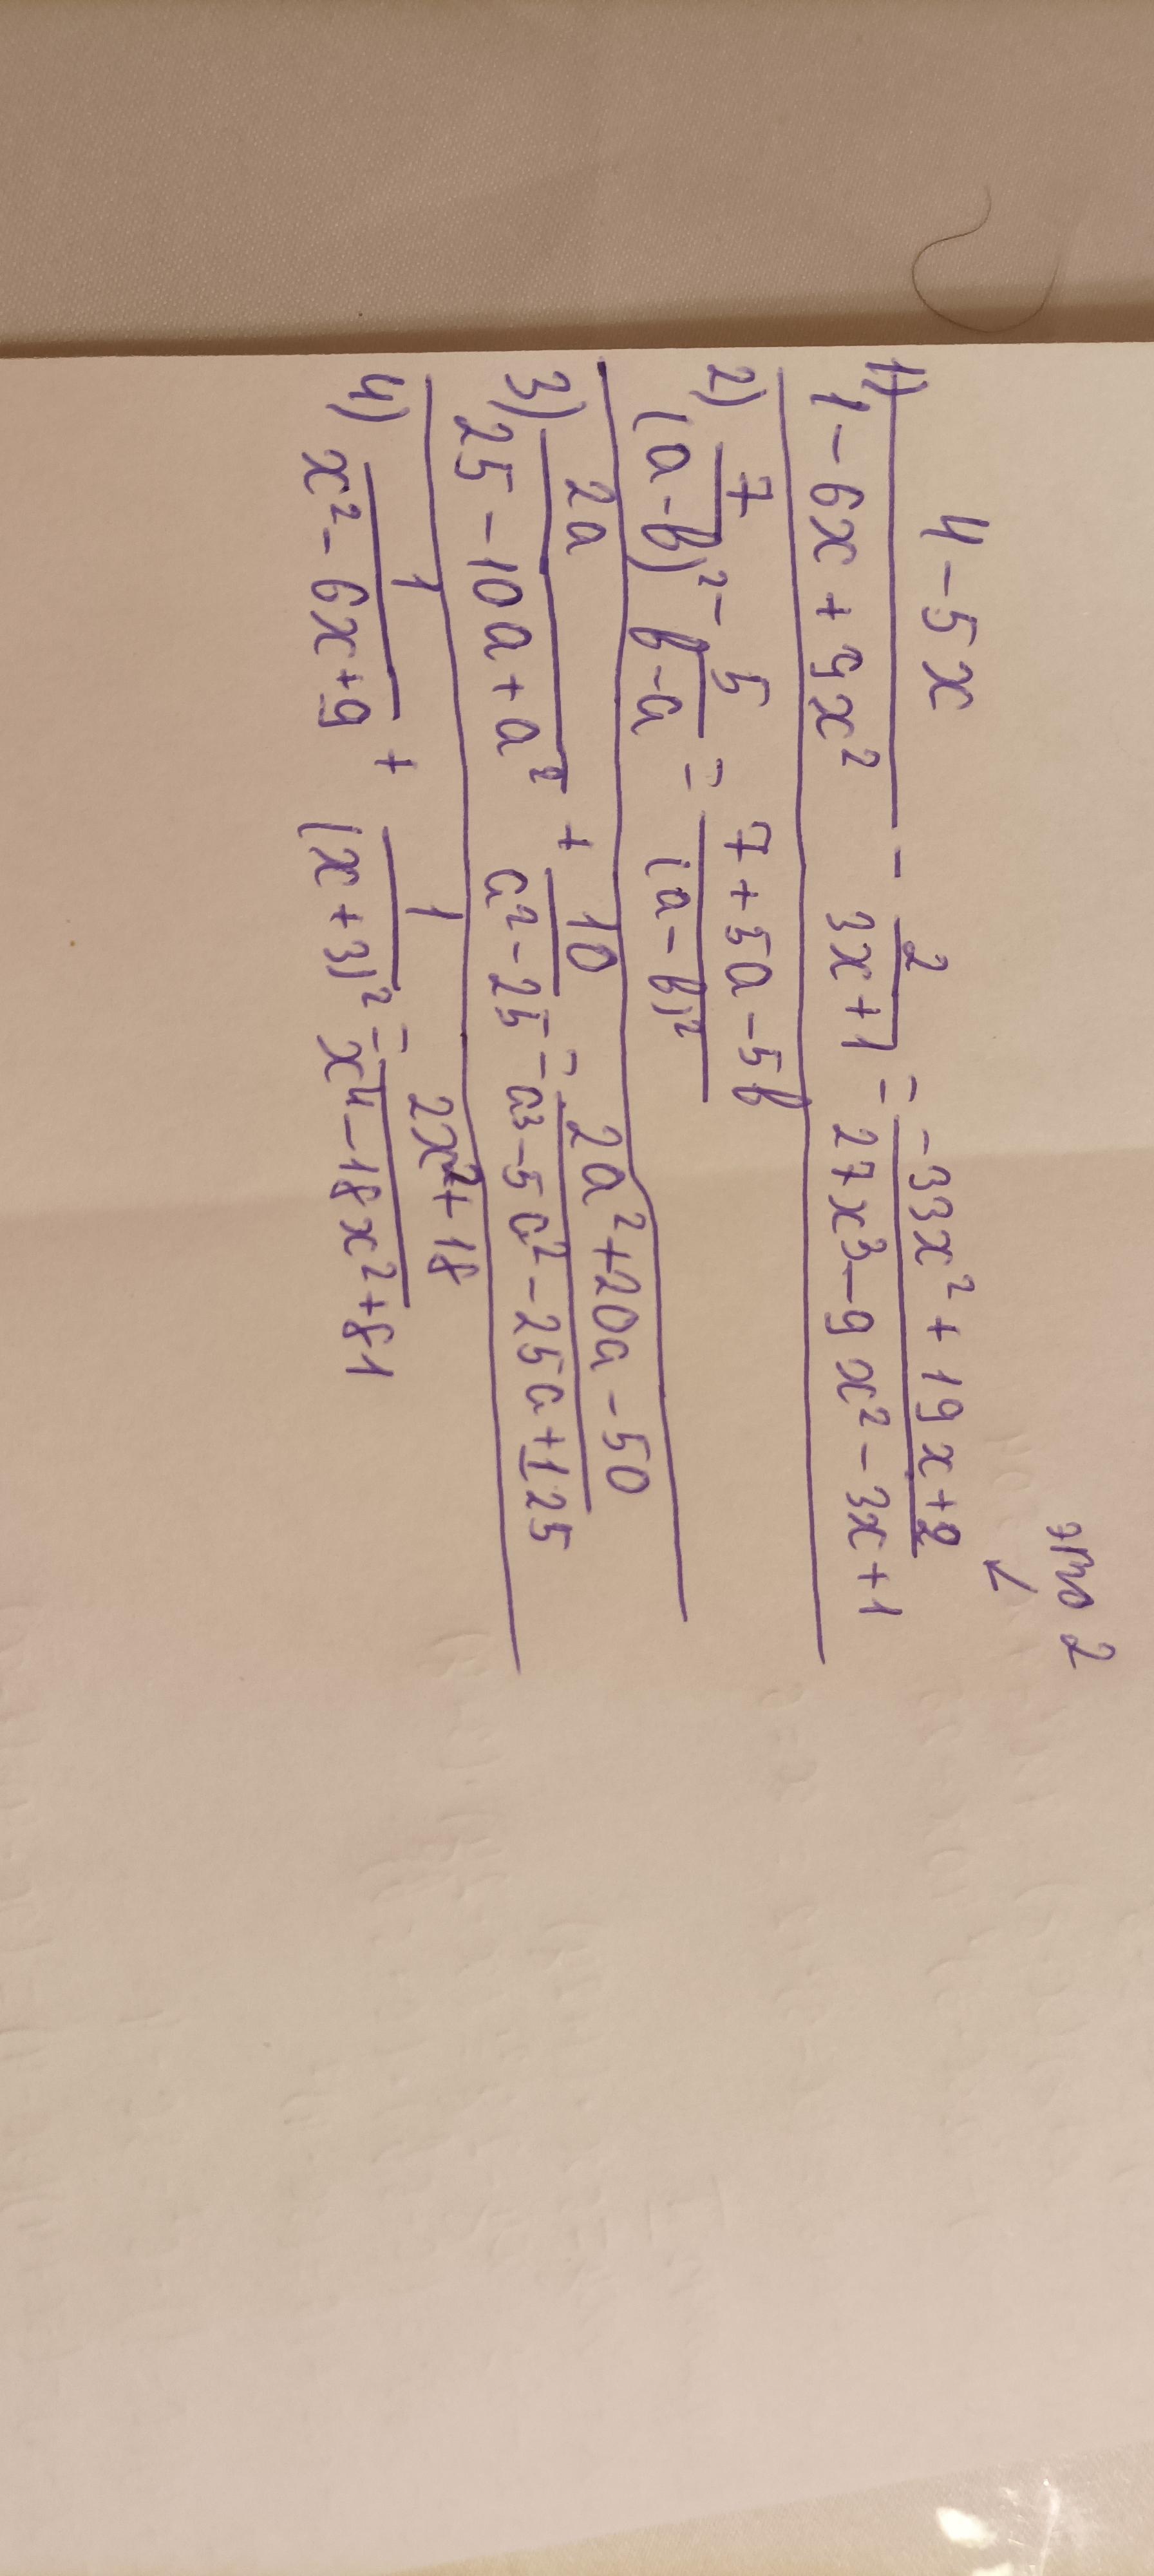 это 2
1) (4 - 5x)/(1 - 6x + 9x²) - 2/(3x + 1) = (-33x² + 19x + 2)/(27x³ - 9x² - 3x + 1)
2) 7/(a - b)² - 5/(b - a) = (7 + 5a - 5b)/(a - b)²
3) 2a/(25 - 10a + a²) + 10/(a² - 25) = (2a² + 20a - 50)/(a³ - 5a² - 25a + 125)
4) 1/(x² - 6x + 9) + 1/(x + 3)² = (2x² + 18)/(x⁴ - 18x² + 81)